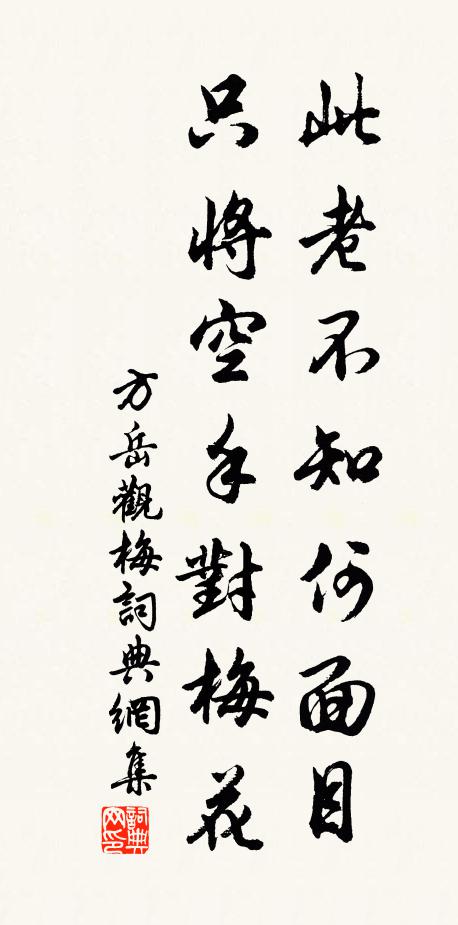 此老不知何面目
只將空手對梅花
方岳觀梅詞典網集
詞典网印